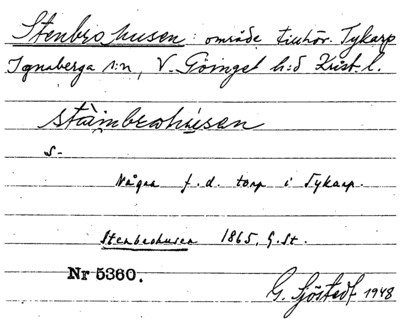 Stenbrohusen: område tillhör. Tykarp
Ignaberga s:n, V. Göinge h:d Krist. l.
stàimbrohúsen
s-
Några f.d. torp i Tykarp.
Stenbrohusen 1865, G.St.
Nr 5360.
G. Sjöstedt 1948